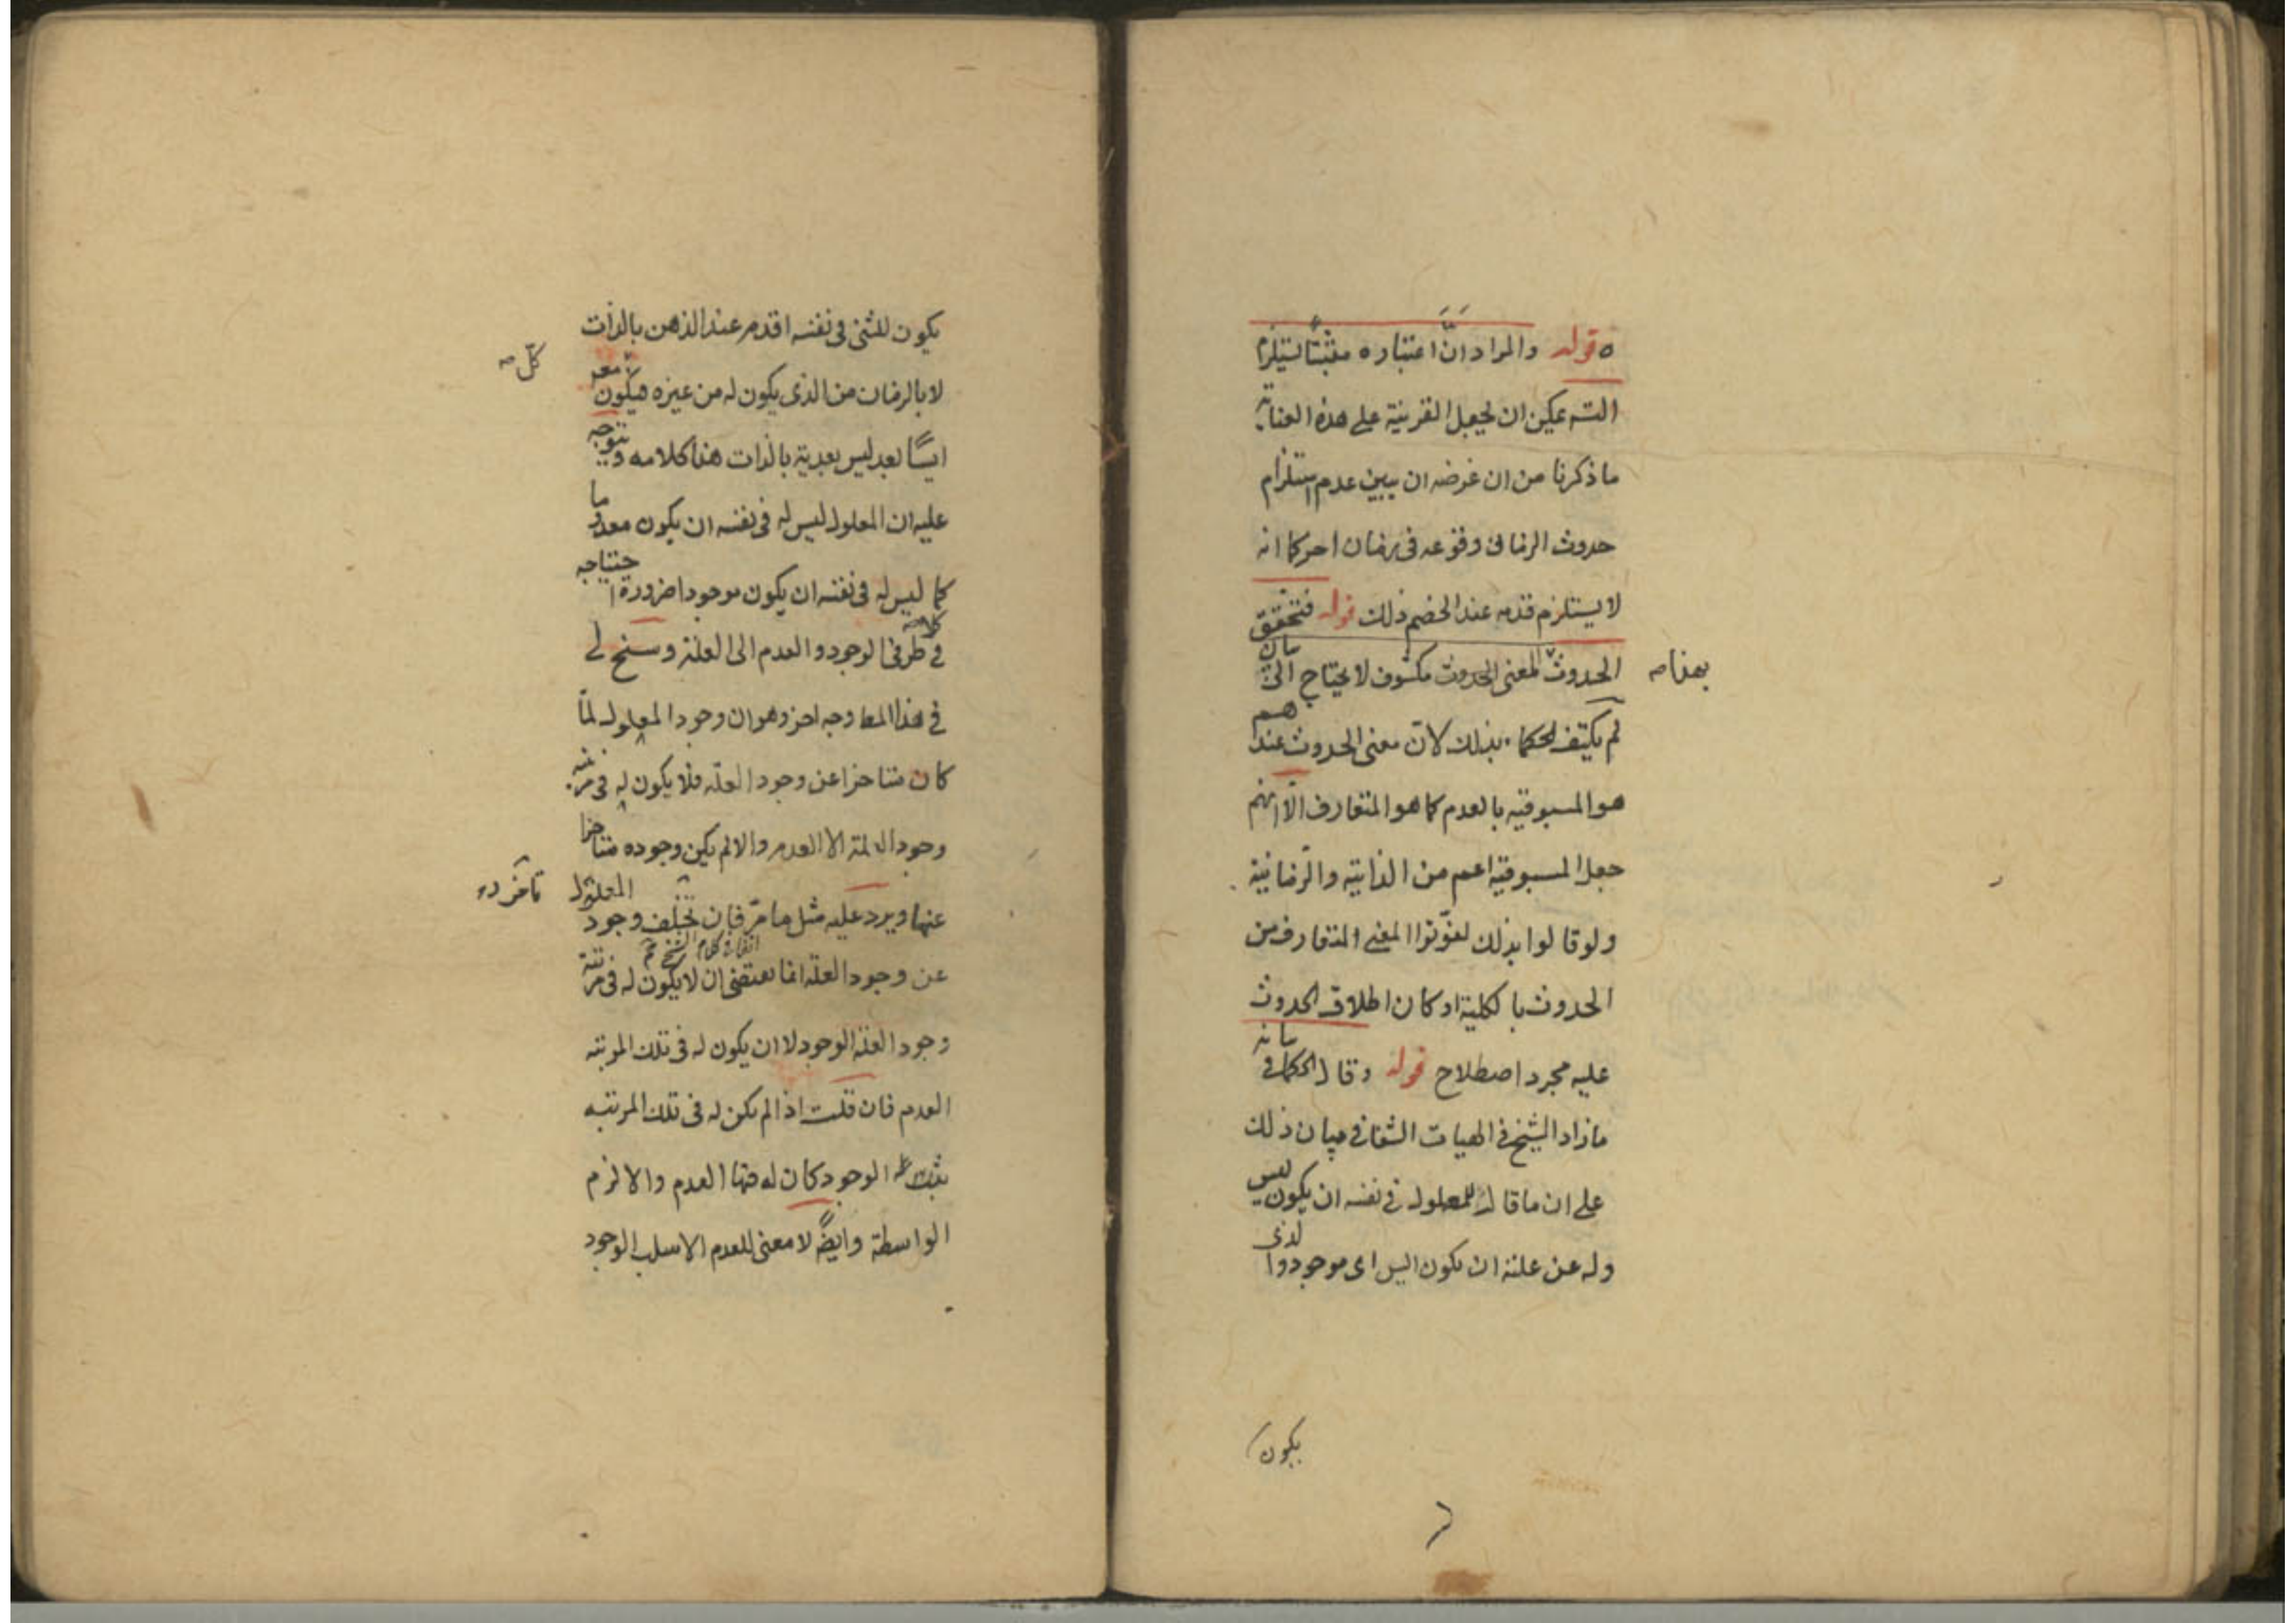 ه قوله والمراد ان اعتباره مثبتا يستلزم
التسـ يمكن ان يجعل القرينة على هذه العناية
ما ذكرنا من ان غرضه ان يبين عدم استلزام
حدوث الزمان وقوعه في زمان اخر كما انه
لا يستلزم قدمه عند الخصم ذلك قوله فتحقق
الحدوث المعنى الحدوث مكشوف لا يحتاج الى بيان
بهذا صـ
لم يكتف الحكماء بذلك لان معنى الحدوث عندهم
هو المسبوقيه بالعدم كما هو المتعارف الا انهم
جعل المسبوقية اعم من الذاتية والزمانية
ولو قالوا بذلك لفوتوا المعنى المتعارف من
الحدوث بالكلية او كان اطلاق الحدوث
عليه مجرد اصطلاح قوله وقال الحكما في بيانه
ما زاد الشيخ في الهيات الشفا في بيان ذلك
على ان ما قال للمعلول في نفسه ان يكون ليس
وله عن علته ان يكون اليس اى موجود والذى
يكون
يكون للشئ في نفسه اقدم عند الذهن بالذات
لا بالزمان من الذى يكون له من غيره فيكون
كل صـ
ايسا بعد ليس بعدية بالذات هذا كلامه ويتوجه
عليه ان المعلول ليس له في نفسه ان يكون معدوما
كما ليس له في نفسه ان يكون موجودا ضرورة احتياجه
في طرفي الوجود والعدم الى العلة وسنح لي
في هذا المعا وجه اخر وهو ان وجود المعلول لما
كان متاخرا عن وجود العله فلا يكون له في مرتبه
وجود العلة الا العدم والا لم يكن وجوده متاخرا
عنها ويرد عليه مثل ما مر فان تخلف وجود المعلول
تاخر
عن وجود العلة انما يقتضى ان لا يكون له في مرتبة
وجود العلة الوجود لا ان يكون له في تلك المرتبه
العدم فان قلت اذا لم يكن له في تلك المرتبه
الوجود كان له فيها العدم والا لزم
الواسطة وايضا لا معنى للعدم الا سلب الوجود